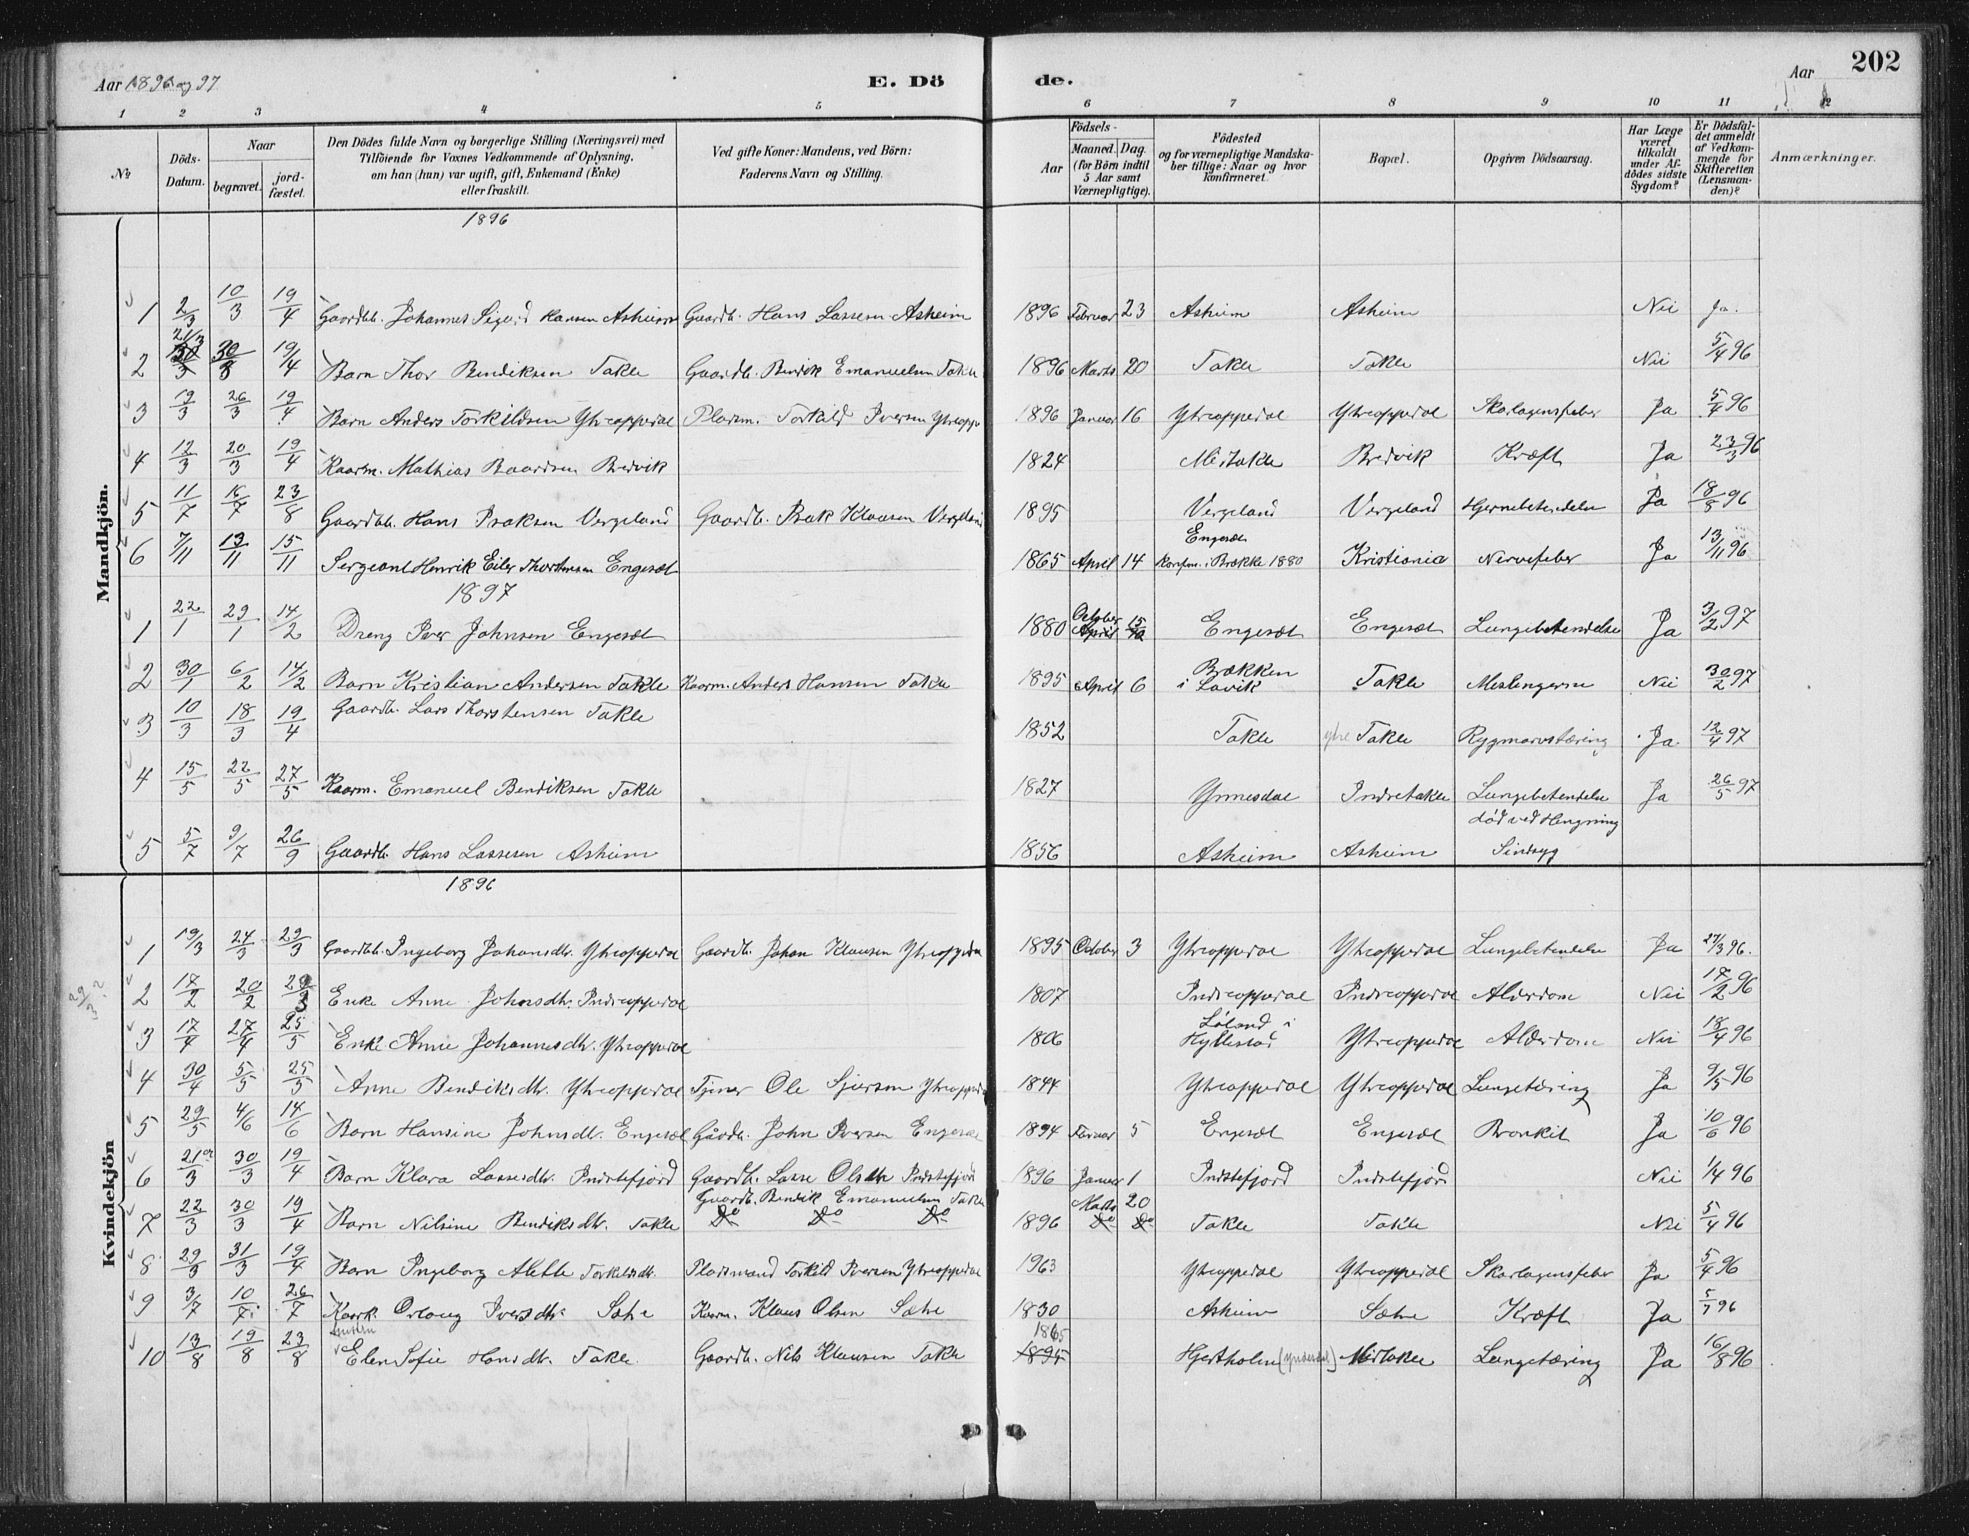 Aar 1896 og 97 E. Döde. Aar 202
1 2 3 4 5 6 7 8 9 10 11 12
No
Döds-Datum.
Naar
begravet.
jord-fæstet.
Den Dödes fulde Navn og borgerlige Stilling (Næringsvei) med
Tilföiende for Voxnes Vedkommende af Oplysning,
om han (hun) var ugift, gift, Enkemand (Enke)
eller fraskilt.
Ved gifte Koner: Mandens, ved Börn:
Faderens Navn og Stilling.
Födsels-
Aar
Maaned. Dag.
(for Börn indtil
5 Aar samt
Værnepligtige).
Födested
og for værnepligtige Mandska-
ber tillige: Naar og hvor
konfirmeret.
Bopæl.
Opgiven Dödsaarsag.
Har Læge
været
tilkaldt
under Af-
dödes sidste
Sygdom?
Er Dödsfal-
det anmeldt
af Vedkom-
mende for
Skifteretten
(Lensman-
den)?
Anmærkninger.
Mandkjön.
1896
1 2/3 10/3 19/4 Gaardbb. Johannes Sigurd Hansen Asheim Gaardb. Hans Lassesen Asheim 1896 Februar 23 Asheim Asheim Nei Ja.
2 21/3 30/3 19/4 Barn Thor Bendiksen Takle Gaardb. Bendik Emanuelsen Takle 1896 Marts 20 Takle Takle Nei 5/4 96
3 19/3 26/3 19/4 Barn Anders Torkildsen Ytreoppedal Pladsm. Torkild Iversen Ytreopp 1896 Januar 16 Ytreoppedal Ytreoppedal Skarlagensfeber Ja 5/4 96
4 12/3 20/3 19/4 Kaarm. Mathias Baardsen Bredvik 1824 Midtakle Bredvik Kræft Ja 23/3 96
5 11/7 16/7 23/8 Gaardbb. Hans Isaksen Vergeland Gaardb. Isak Klausen Vergeland 1895 Vergeland Vergeland Hjernebetendelse Ja 18/8 96
6 7/11 13/11 15/11 Sergeant Henrik Eiler Thorstensen Engesæt 1865 April 14 Engesæt Konfm. i Brække 1880 Kristiania Nervefeber Ja 13/11 96
1897
1 22/1 29/1 14/2 Dreng Iver Johnsen Engesæt 1880 October April 15 Engesæt Engesæt Lungebetendelse Ja 3/2 97
2 30/1 6/2 14/2 Barn Kristian Andersen Takle Kaarm. Anders Hansen Takle 1895 April 6 Brækken i Lavik Takle Meslingerne Nei 30/2 97
3 10/3 18/3 19/4 Gaardb. Lars Thorstensen Takle 1852 Takle ytre Takle Rygmarvstæring Ja 12/4 97
4 15/5 22/5 27/5 Kaarm. Emanuel Bendiksen Takle 1827 Ynnesdal Indretakle Lungebetendelse Ja 26/5 97
5 5/7 9/7 26/9 Gaardb. Hans Lassesen Asheim 1856 Asheim Asheim död ved Hengning Sindsyg
Kvindekjön
1896
1 19/3 24/3 29/3 Gaardbb. Ingeborg Johansdtr. Ytreoppedal Gaardb. Johan Klausen Ytreoppedal 1895 October 3 Ytreoppedal Ytreoppedal Lungebetendelse Ja 27/3 96.
29/3 ?
2 17/2 20/2 29/3 Enke Anne Johnsdtr. Indreoppedal 1807 Indreoppedal Indreoppedal Alderdom Nei 17/2 96
3 17/4 27/4 25/5 Enke Anne Johannesdtr. Ytreoppedal 1806 Löland i Hyllestad Ytreoppedal Alderdom Nei 18/4 96
4 30/4 5/5 25/5 Anne Bendiksdtr. Ytreoppedal Tjener Ole Sjursen Ytreoppedal 1844 Ytreoppedal Ytreoppedal Lungetæring Ja 9/5 96
5 29/5 4/6 14/6 Barn Hansine Johnsdtr. Engesæt Gaardb. John Iversen Engesæt 1894 5 Engesæt Engesæt Bronkit Ja 10/6 96
6 21/3 30/3 19/4 Barn Klara Lassesdtr. Indrefjord Gaardb. Lasse Olsen Indrefjord 1896 Januar 1 Indrefjord Indrefjord Nei 1/4 96
7 22/3 30/3 19/4 Barn Nilsine Bendiksdtr. Takle Gaardb. Bendik Emanuelsen Takle Do Do Do 1896 Marts 20 Do Do Takle Takle Nei 5/4 96
8 29/3 31/3 19/4 Barn Ingeborg Alette Torkildsdtr. Pladsmand Torkild Iversen Ytreoppedal 1963 Ytreoppedal Ytreoppedal Skarlagensfeber Ja 5/4 96
9 3/7 10/7 26/7 Kaark. Orloug Iversdtr. Sætre Kaarm. Klaus Olsen Sætre 1830 Asheim Sætre Kræft Ja 5/7 96
10 13/8 19/8 23/8 Elen Sofie Hansdtr. Takle Gaardb. Nils Klausen Takle 1865 1895 Hjertholm (Ynnesdal) Midtakle Lungetæring Ja 16/8 96